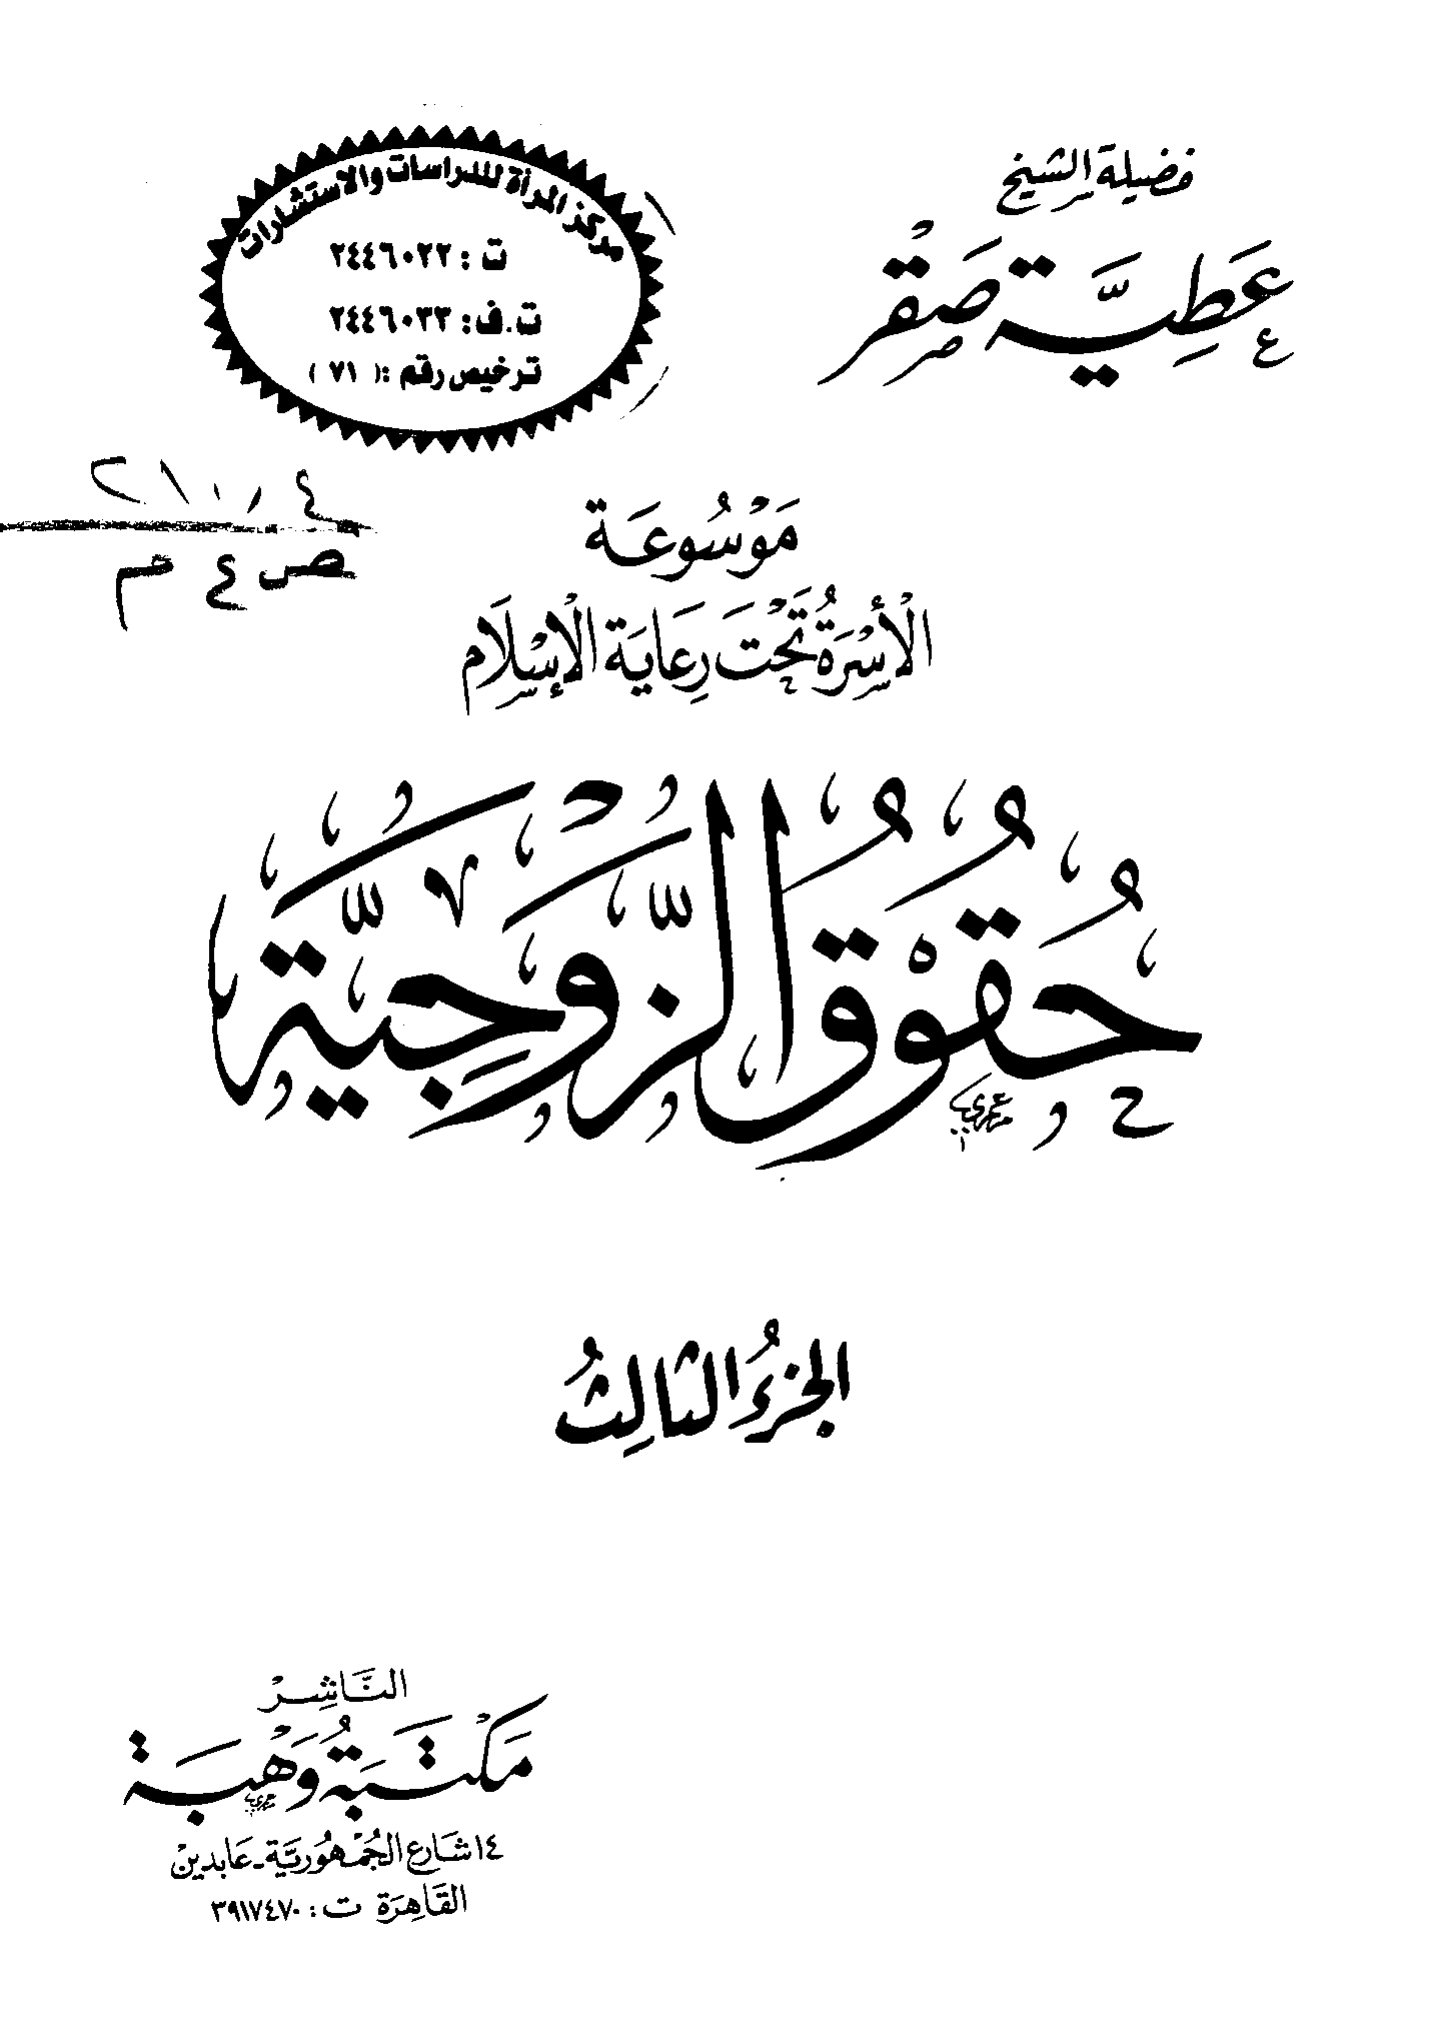 فضيلة الشيخ
عَطِيَّة صَقْر
مركز المرأة للدراسات والاستشارات
ت : ٢٤٤٦٠٢٢
ت.ف: ٢٤٤٦٠٣٣
ترخيص رقم :( ٧١ )
٢١٠,٤
ص ٤ م
مَوْسُوعَة
الْأُسْرَةُ تَحْتَ رِعَايَة الْإِسْلَام
حُقُوقُ الزَّوْجِيَّة
الجزءُ الثالِثُ
النَّاشِرْ
مَكْتَبَةُ وَهْبَة
١٤ شَارِع الجُمْهُورِيَّة ـ عَابدِينْ
القَاهِرَة ت : ٣٩١٧٤٧٠